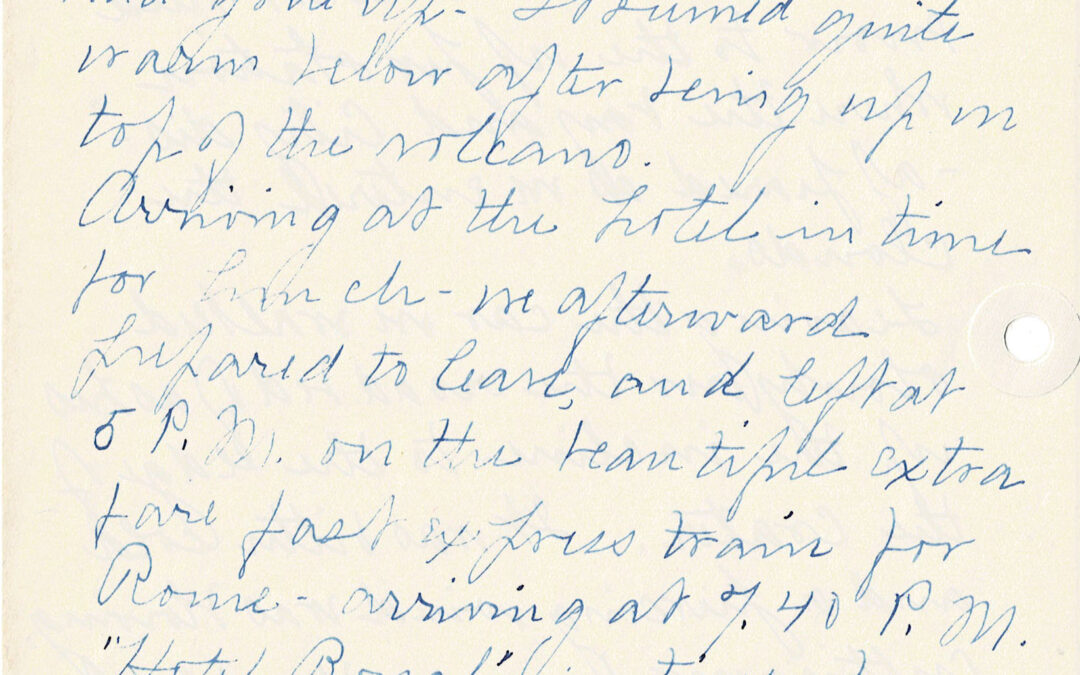 seemed quite
warm below after being up in
top of the volcano.
Arriving at the hotel in time
for lunch - we afterward
prepared to leave, and left at
5 P.M. on the beautiful extra
fare fast express train for
Rome - arriving at 7.40 P.M.
"Hotel Royal" in time